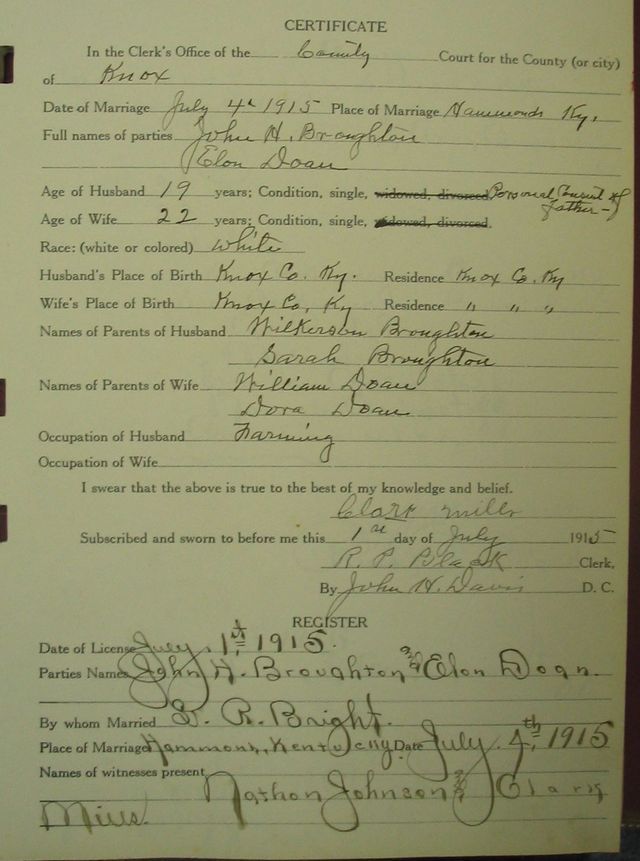 CERTIFICATE
In the Clerk's Office of the County Court for the County (or city)
of Knox
Date of Marriage July 4th 1915 Place of Marriage Hammonds Ky.
Full names of parties John H. Broughton
Elon Doan
Age of Husband 19 years; Condition, single, widowed, divorced Personal Consent of
Father
Age of Wife 22 years; Condition, single, widowed, divorced.
Race: (white or colored) White
Husband's Place of Birth Knox Co. Ky. Residence Knox Co. Ky
Wife's Place of Birth Knox Co, Ky Residence " " "
Names of Parents of Husband Wilkerson Broughton
Sarah Broughton
Names of Parents of Wife William Doan
Dora Doan
Occupation of Husband Farming
Occupation of Wife
I swear that the above is true to the best of my knowledge and belief.
Clark Mills
Subscribed and sworn to before me this 1st day of July 1915
R. P. Black Clerk,
By John H. Davis D. C.
REGISTER
Date of License July. 1st, 1915.
Parties Names John H. Broughton and Elon Doan.
By whom Married G. R. Bright.
Place of Marriage Hammons, Kentucky Date July. 4th, 1915
Names of witnesses present
Nathon Johnson & Clark
Mills.